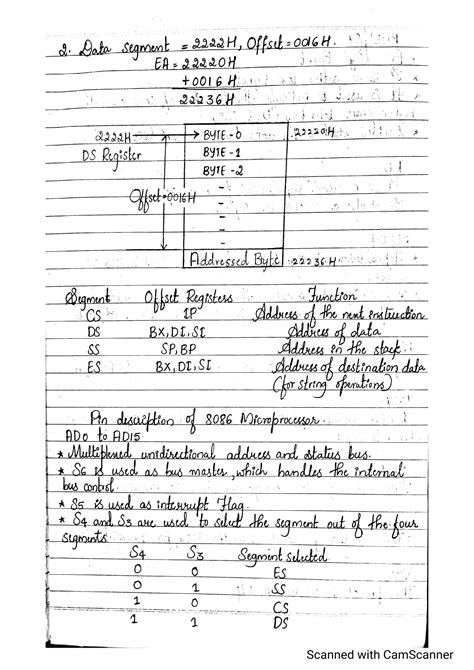 2. Data segment = 2222H, Offset = 0016H.
EA = 22220H
+0016H
22236H
2222H → BYTE-0 22220H
DS Register BYTE-1
BYTE-2
-
Offset=0016H -
-
-
Addressed Byte 22236H
Segment Offset Registers Function
CS IP Address of the next instruction
DS BX, DI, SI Address of data
SS SP, BP Address in the stack.
ES BX, DI, SI Address of destination data
(for string operations)
Pin description of 8086 Microprocessor
AD0 to AD15
* Multiplexed unidirectional address and status bus.
* S6 is used as bus master, which handles the internal
bus control.
* S5 is used as interrupt Flag.
* S4 and S3 are used to select the segment out of the four
segments
S4 S3 Segment selected
0 0 ES
0 1 SS
1 0 CS
1 1 DS
Scanned with CamScanner